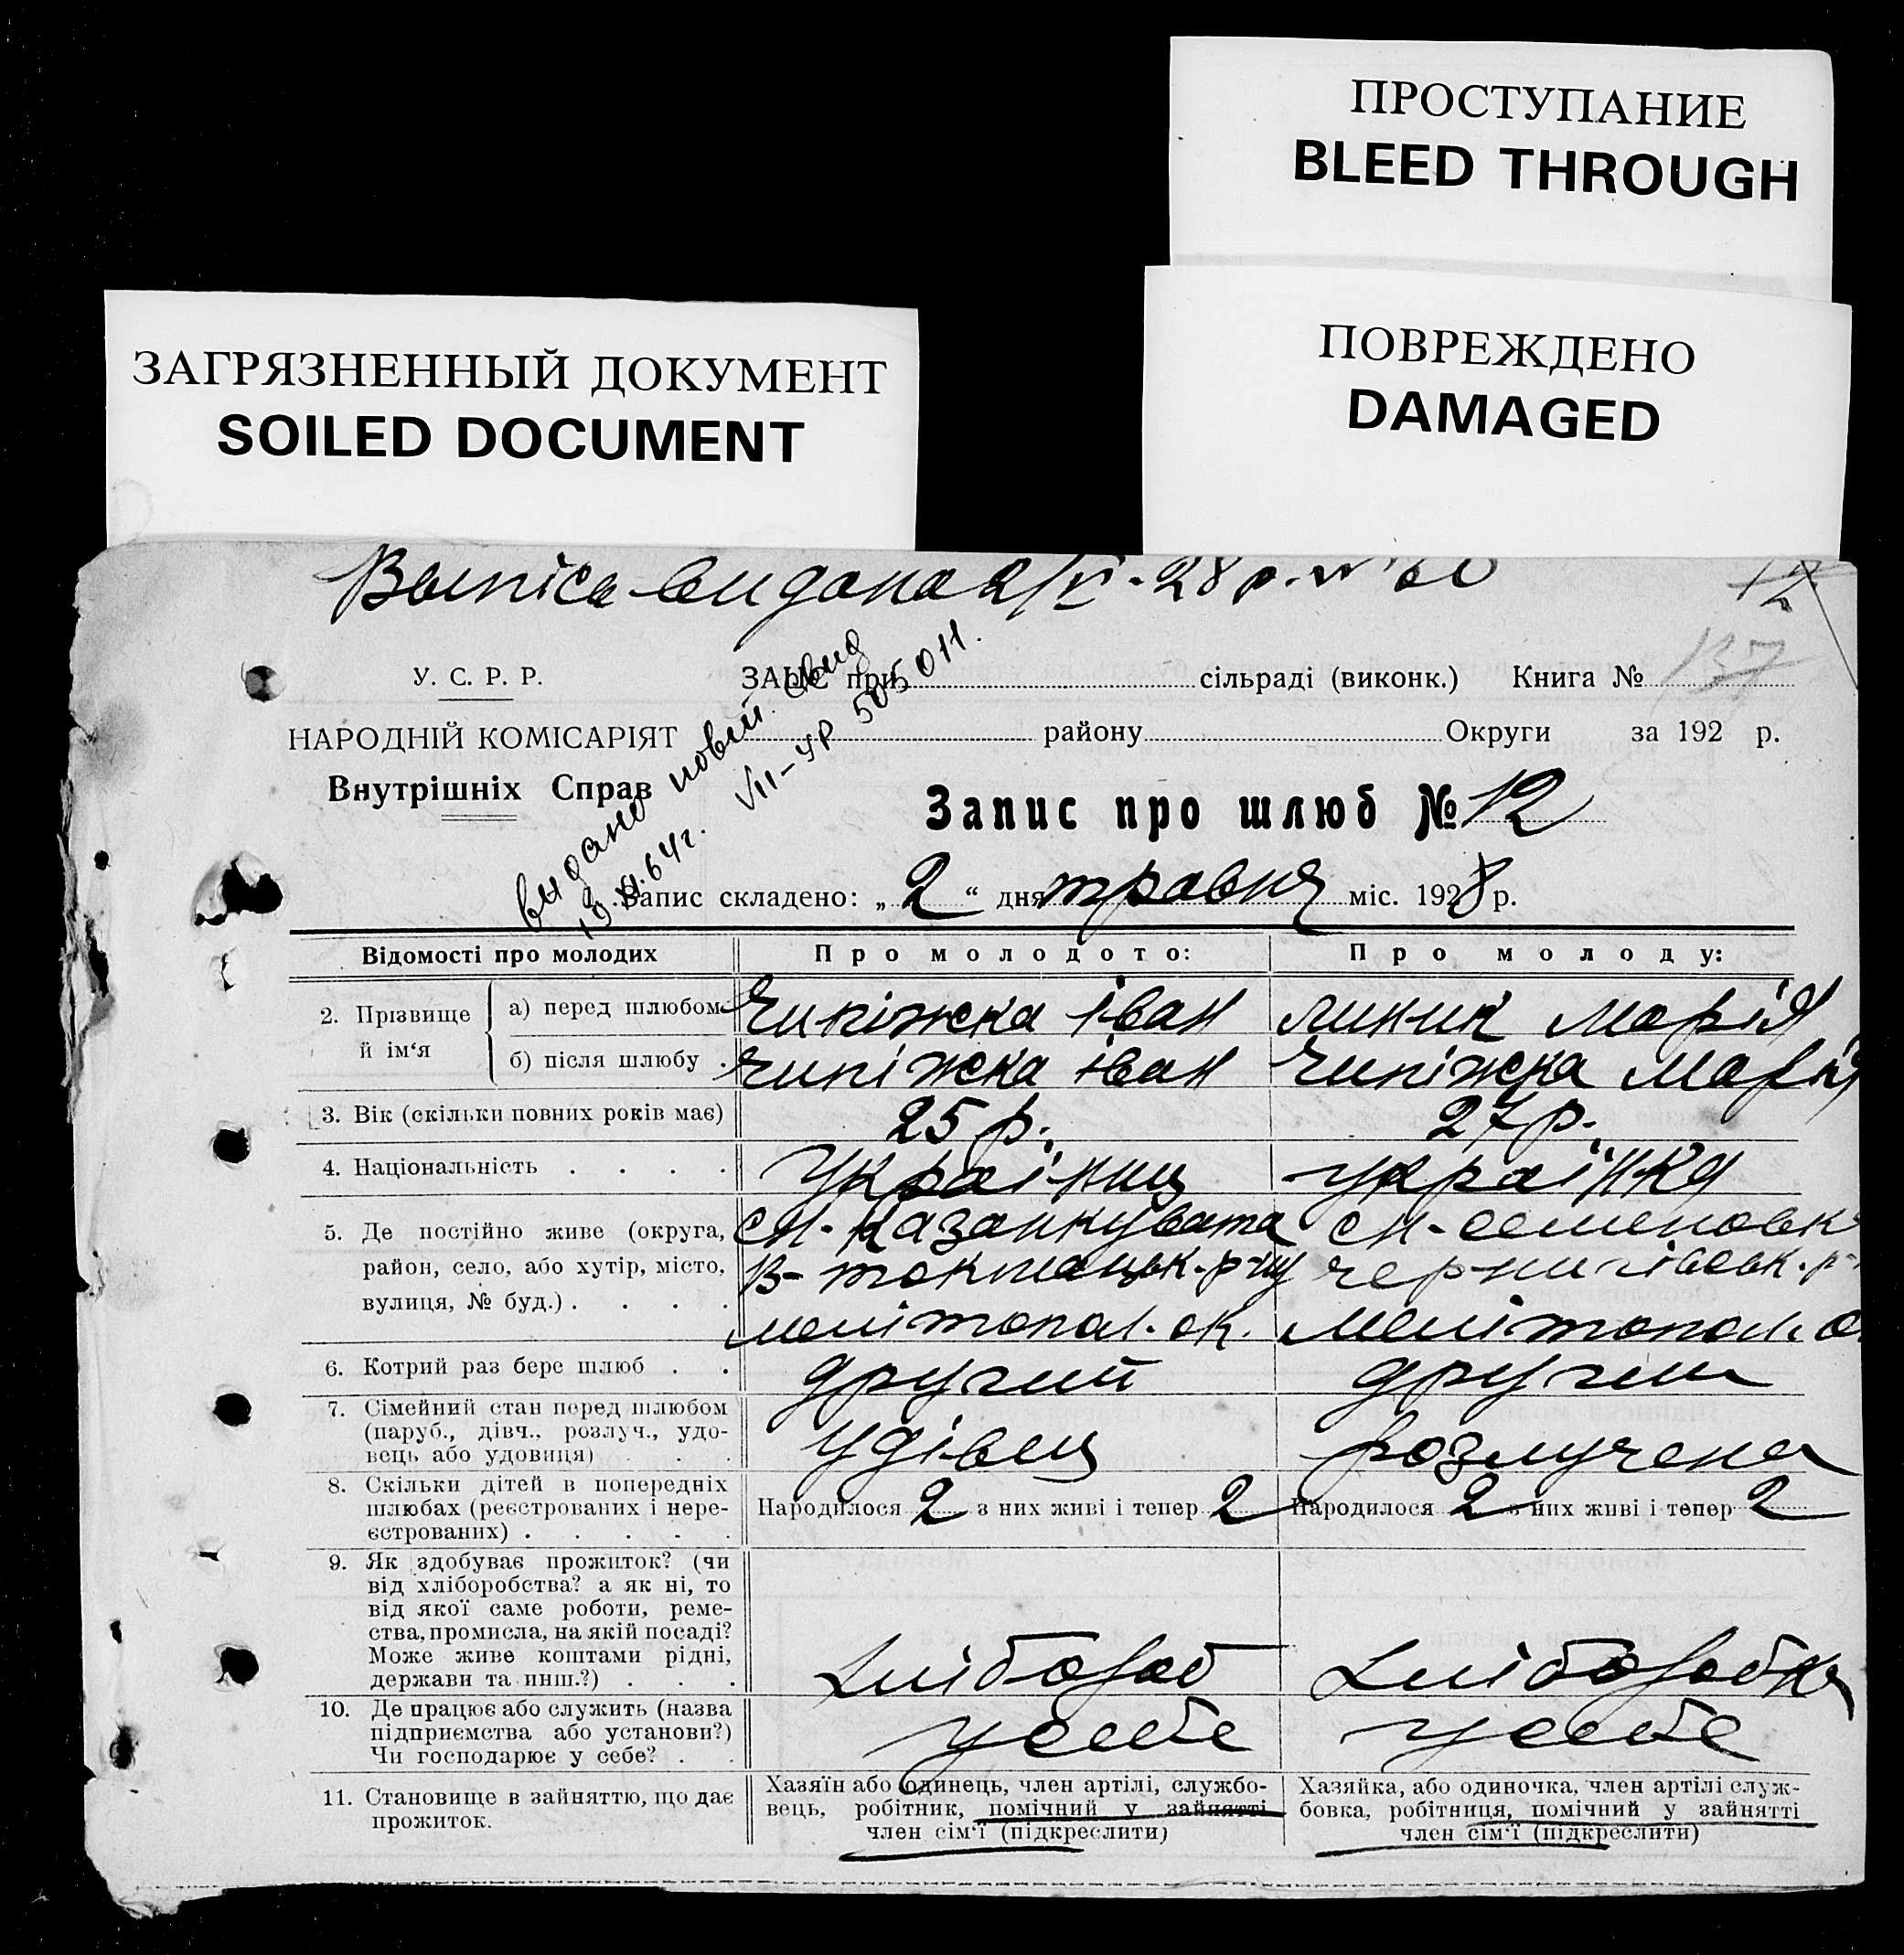 ПРОСТУПАНИЕ
BLEED THROUGH
ЗАГРЯЗНЕННЫЙ ДОКУМЕНТ
SOILED DOCUMENT
ПОВРЕЖДЕНО
DAMAGED
Выпісь видана 2/VI-28 р. № 60
12
137
У. С. Р. Р.
ЗАЦС при сільраді (виконк.) Книга №
НАРОДНІЙ КОМІСАРІЯТ
району Округи за 192 р.
Внутрішніх Справ
видано новый свид
VII-УР 505011.
Запис про шлюб № 12
1. Запис складено: „ 2 “ дня травня міс. 1928 р.
Відомості про молодих Про молодого: Про молоду:
2. Прізвище й ім‘я а) перед шлюбом Чипіжка Іван Линик Марія
б) після шлюбу . Чипіжка Іван Чипіжка Марія
3. Вік (скільки повних років має) 25 р. 27 р.
4. Національність . . . . Українец Українка
5. Де постійно живе (округа, см. Казанкувата см-семеновка
район, село, або хутір, місто, В-токмацьк. р-ну чернигівськ. р-
вулиця, № буд.) . . . . мелітопол. ок. Мелітопол. о
6. Котрий раз бере шлюб . . другий други
7. Сімейний стан перед шлюбом
(паруб., дівч., розлуч., удо-
вець або удовиця) . . . удівец розлучена
8. Скільки дітей в попередніх
шлюбах (реєстрованих і нере- Народилося 2 з них живі і тепер 2 Народилося 2 з них живі і тепер 2
єстрованих) . . . . .
9. Як здобуває прожиток? (чи
від хліборобства? а як ні, то
від якої саме роботи, реме-
ства, промисла, на якій посаді?
Може живе коштами рідні,
держави та инш.?) . . . Хлібороб Хліборобка
10. Де працює або служить (назва
підприємства або установи?) у себе у себе
Чи господарює у себе? . .
11. Становище в зайняттю, що дає
прожиток.
Хазяїн або одинець, член артілі, службо-
вець, робітник, помічний у зайнятті
член сім‘ї (підкреслити)
Хазяйка, або одиночка, член артілі служ-
бовка, робітниця, помічний у зайнятті
член сім‘ї (підкреслити)